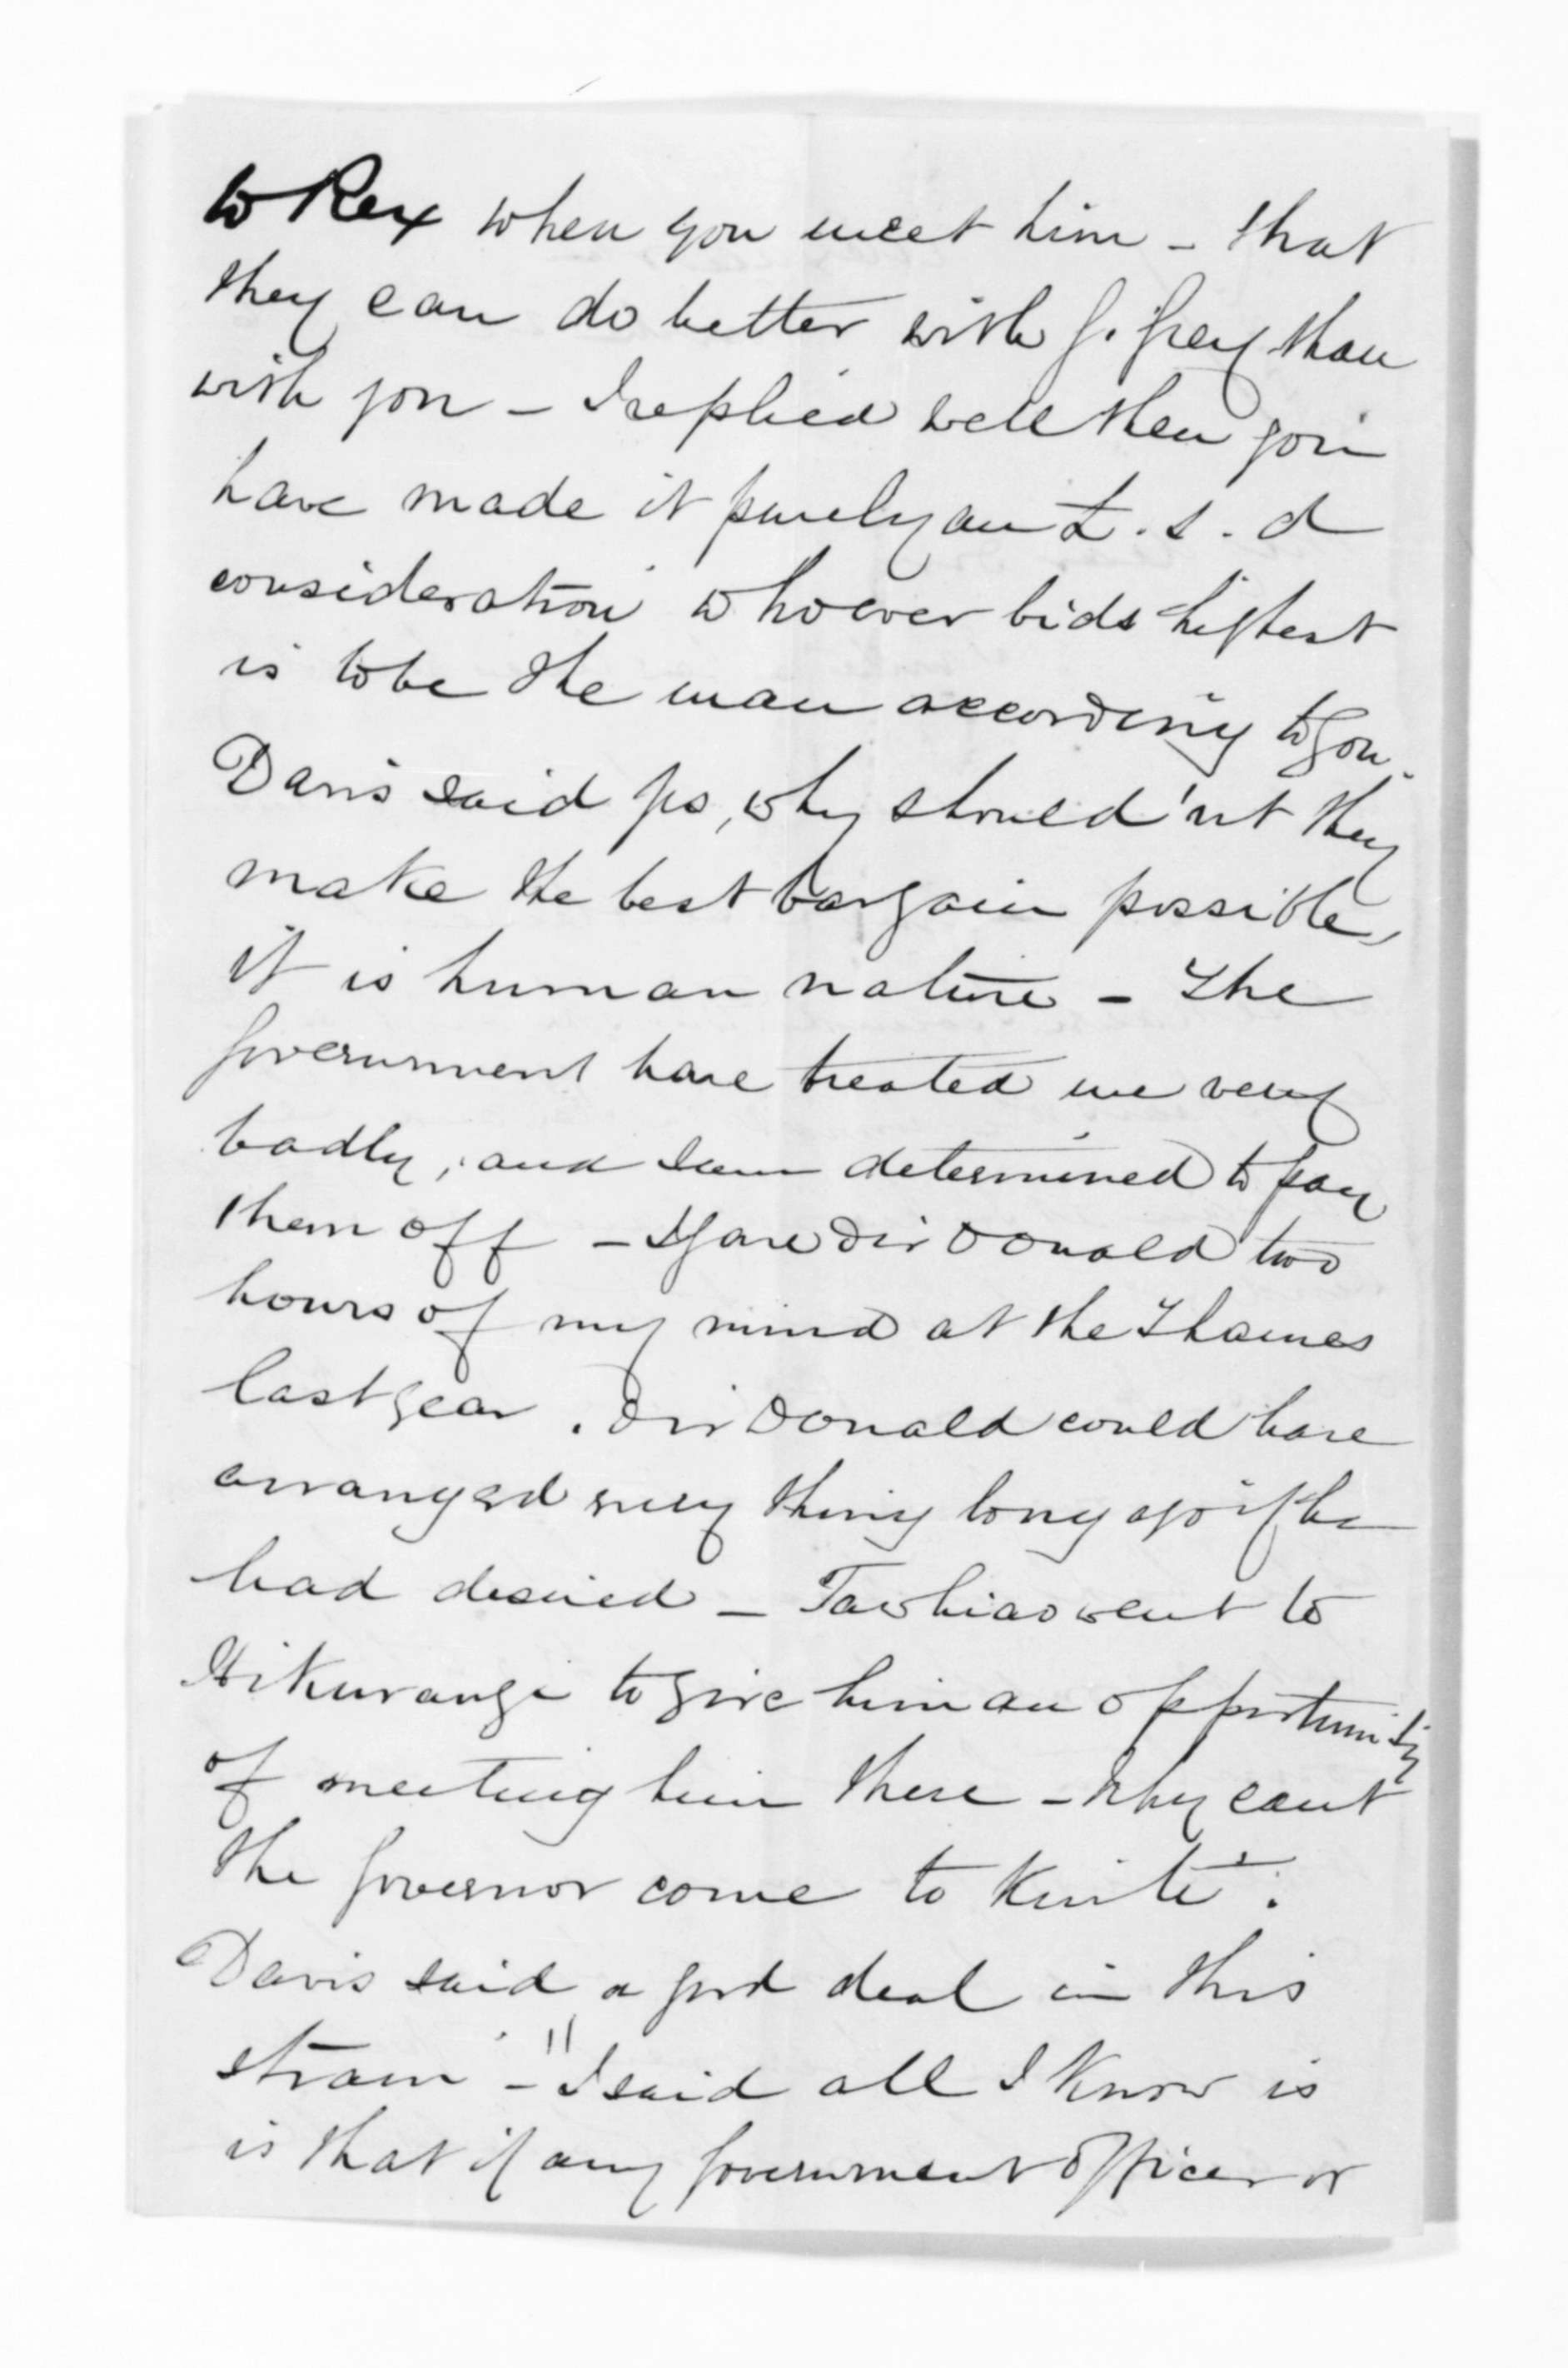 to Rex when you meet him - that
they can do better with G. Grey than
with you - I replied well then you
have made it purely an £. s. d
consideration whoever bids highest
is to be the man according to you.
Davis said yes, why should'nt they
make the best bargain possible,
it is human nature - The
Government have treated me very
badly, and I am determined to pay
them off - I gave Sir Donald two
hours of my mind at the Thames
last year. Sir Donald could have
arranged every thing long ago if he
had desired - Tawhiao went to
Hikurangi to give him an opportunity
of meeting him there - Why cant
the Governor come to Kuiti.
Davis said a good deal in this
strain - " I said all I know is
is that if any Government Officer or